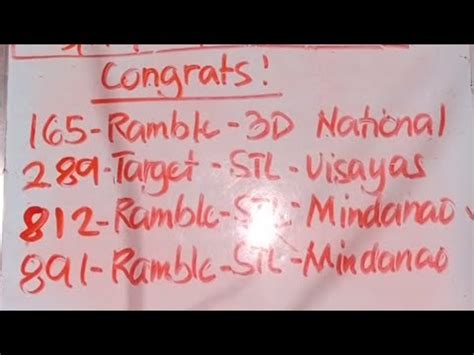 Congrats!
165-Ramble-3D National
289-Target-STL-Visayas
812-Ramble-STL-Mindanao
891-Ramble-STL-Mindanao